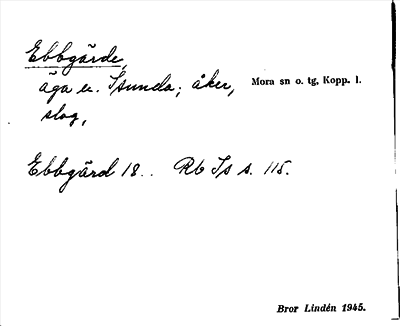 Ebbgärde,
äga u. Isunda; åker, Mora sn o. tg, Kopp. l.
slog,
Ebbgärd 18.. Rb Is s. 115.
Bror Lindén 1945.